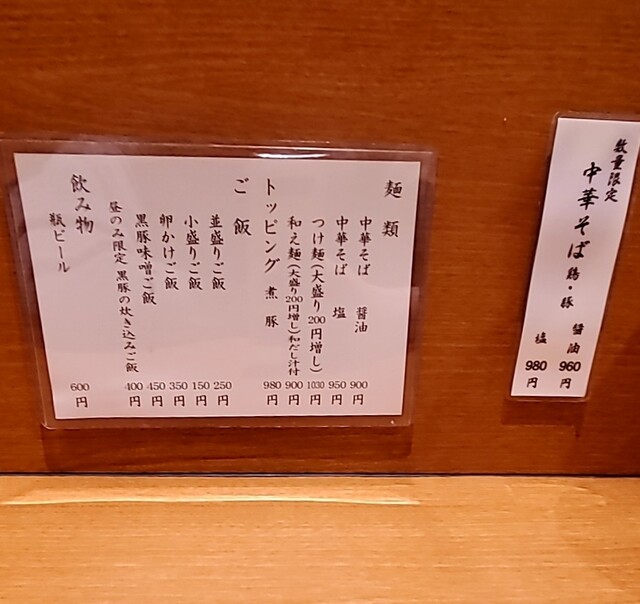 数量限定
中華そば 鶏・豚 醤油 960円
塩 980円
麺類
中華そば 醤油 900円
中華そば 塩 950円
つけ麺(大盛り200円増し) 1030円
和え麺(大盛り200円増し)和だし汁付 900円
トッピング 煮豚 980円
ご飯
並盛りご飯 250円
小盛りご飯 150円
卵かけご飯 350円
黒豚味噌ご飯 450円
昼のみ限定 黒豚の炊き込みご飯 400円
飲み物
瓶ビール 600円